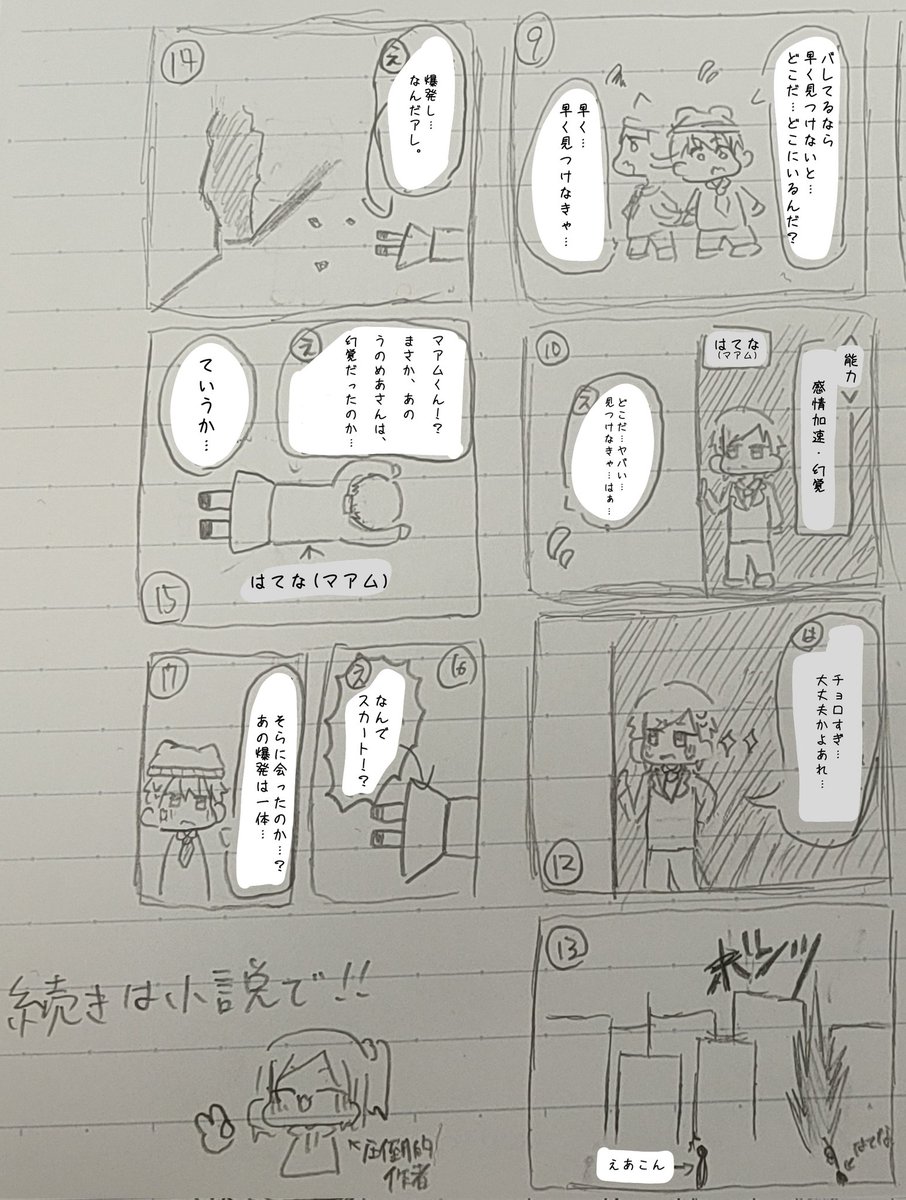 ⑨
バレてるなら
早く見つけないと…
どこだ…どこにいるんだ?
早く…
早く見つけなきゃ…
⑩
<能力>
感情加速・幻覚
はてな
(マアム)
え
どこだ…ヤバい…
見つけなきゃ…はぁ…
⑫
は
チョロすぎ…
大丈夫かよあれ…
⑬
ボンッ
えあこん→
←はてな
⑭
え
爆発し…
なんだアレ。
⑮
え
マアムくん!?
まさか、あの
うのめあさんは、
幻覚だったのか…
ていうか…
↑
はてな(マアム)
⑯
え
なんで
スカート!?
⑰
そらに会ったのか…?
あの爆発は一体…
続きは小説で!!
←圧倒的
作者